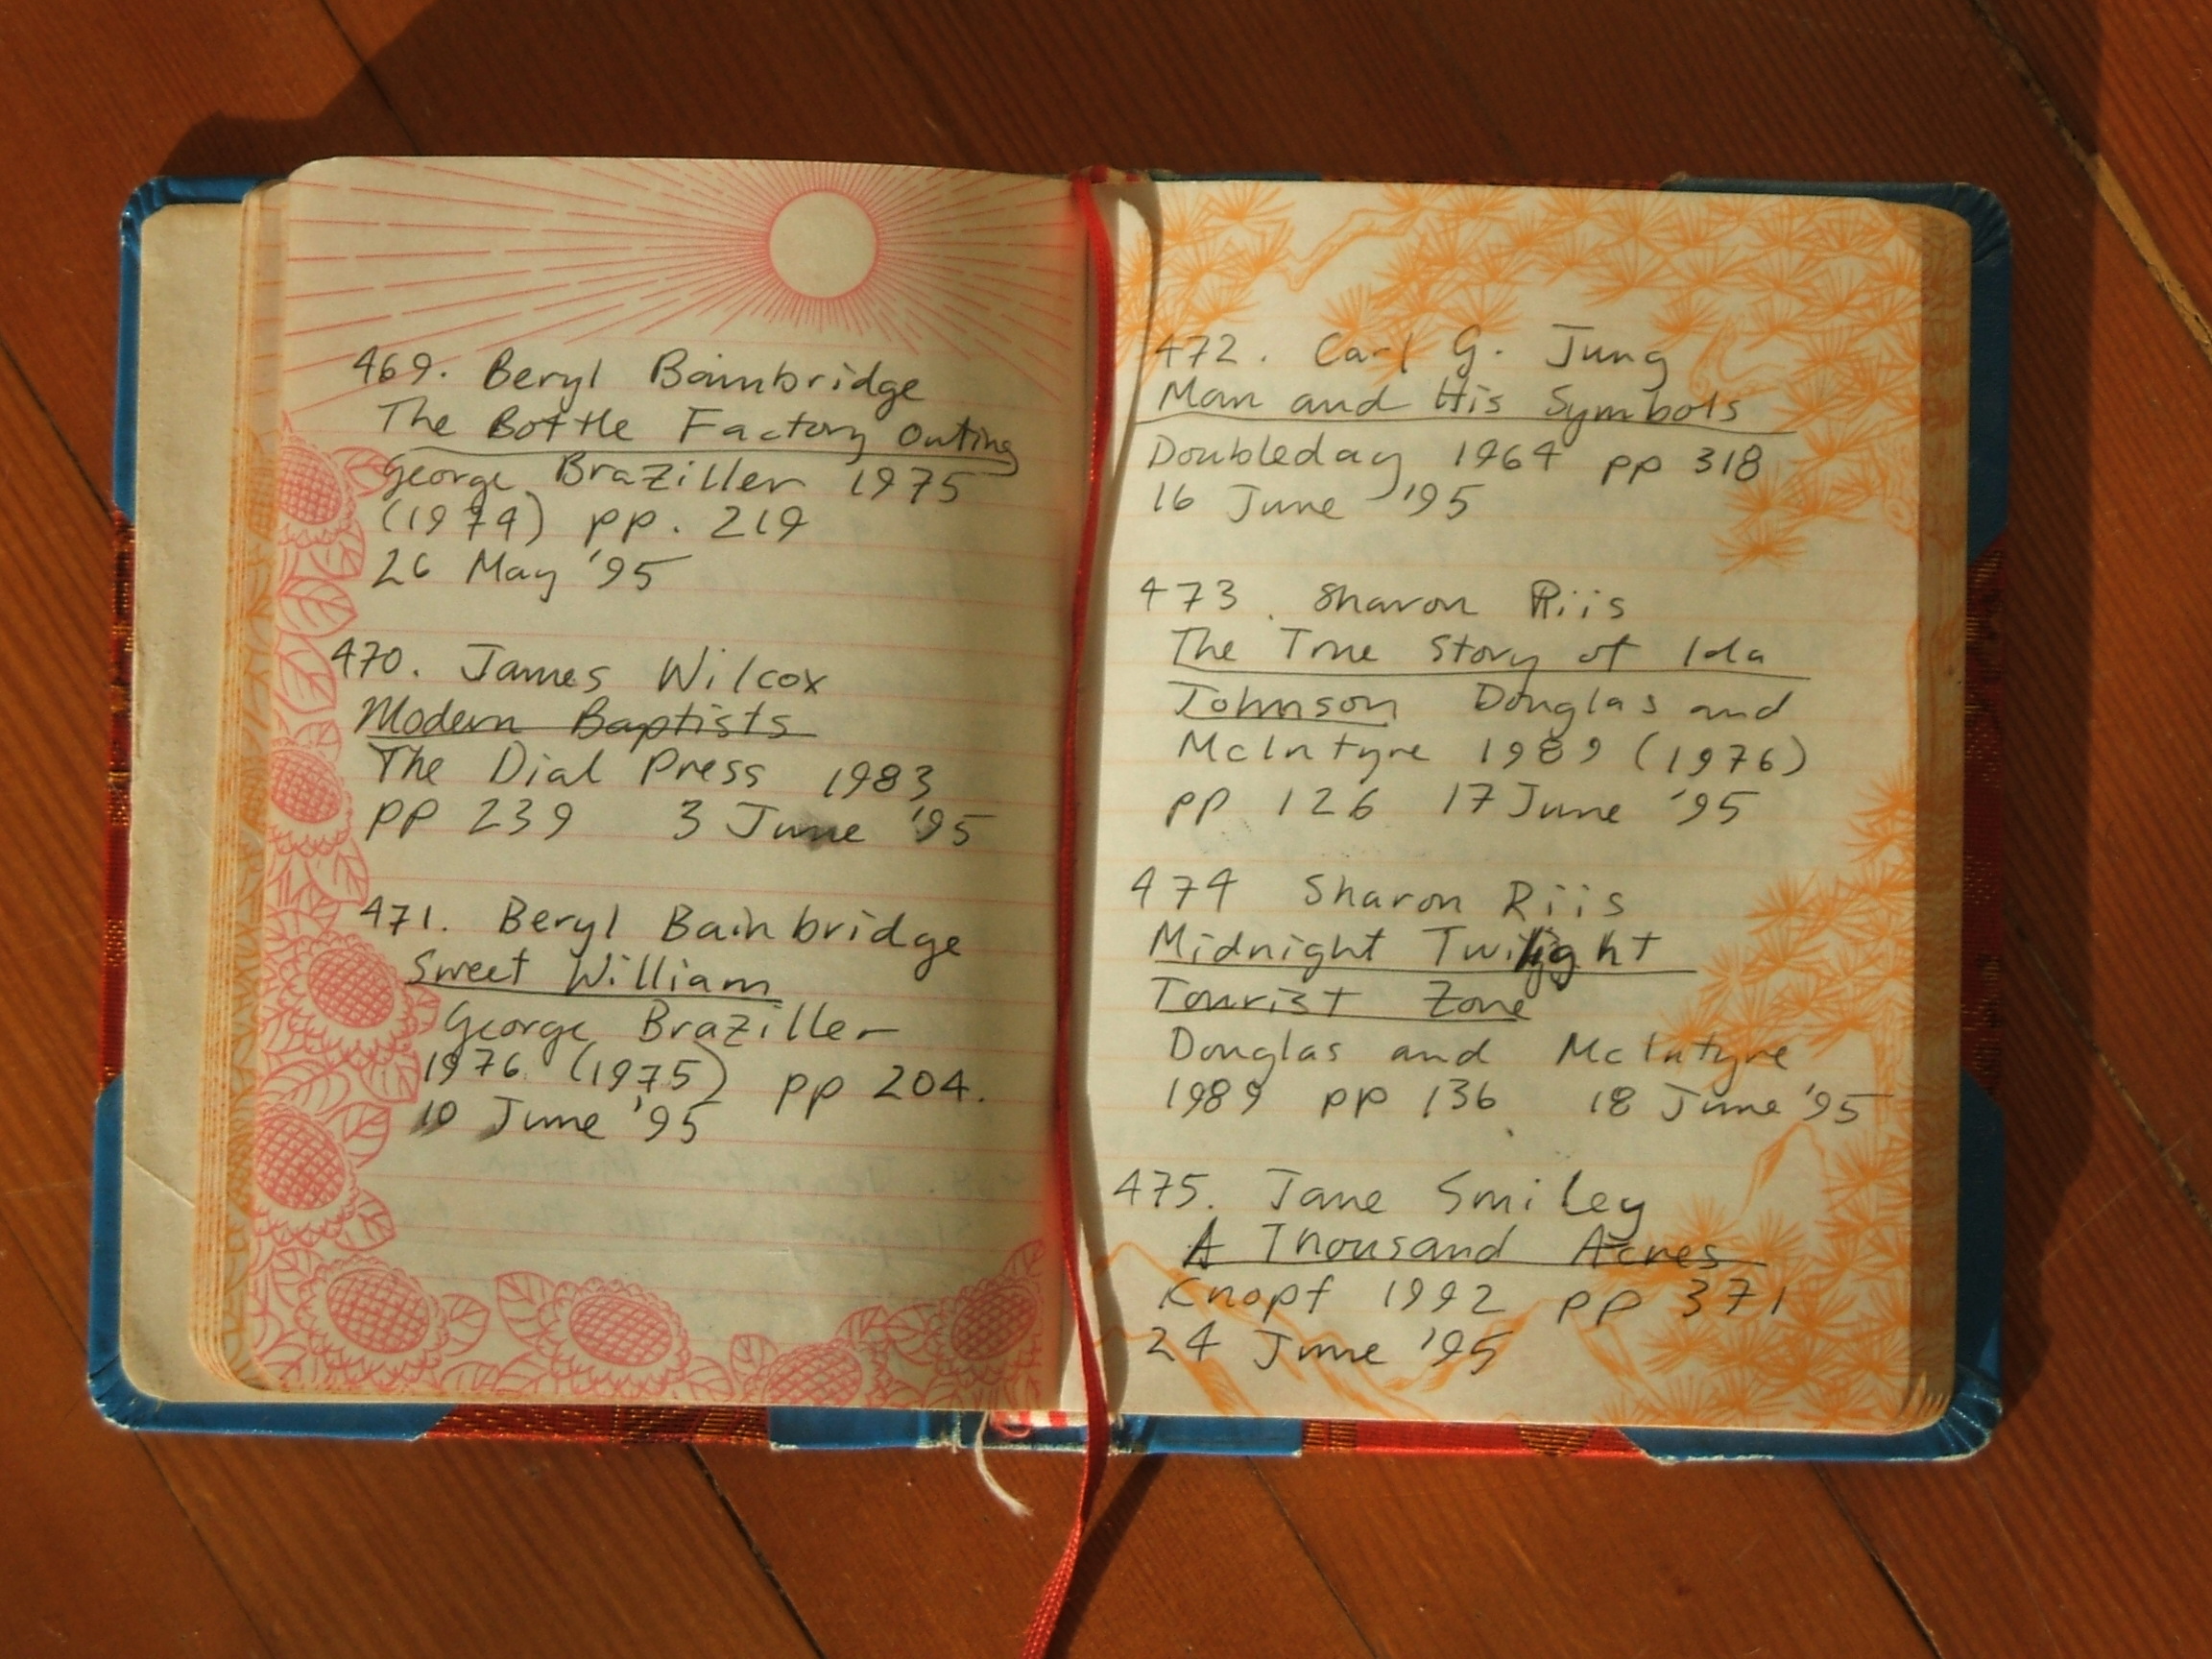 469. Beryl Bainbridge
The Bottle Factory Outing
George Braziller 1975
(1974) pp. 219
26 May '95
470. James Wilcox
Modern Baptists
The Dial Press 1983
pp 239 3 June '95
471. Beryl Bainbridge
Sweet William
George Braziller
1976 (1975) pp 204.
10 June '95
472. Carl G. Jung
Man and His Symbols
Doubleday 1964 pp 318
16 June '95
473. Sharon Riis
The True Story of Ida
Johnson Douglas and
McIntyre 1989 (1976)
pp 126 17 June '95
474 Sharon Riis
Midnight Twilight
Tourist Zone
Douglas and McIntyre
1989 pp 136 18 June '95
475. Jane Smiley
A Thousand Acres
Knopf 1992 pp 371
24 June '95